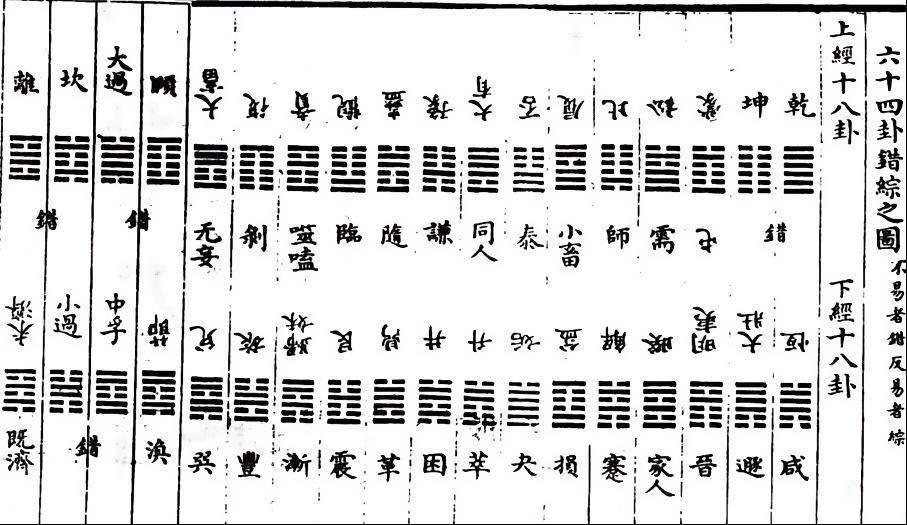 六十四卦錯綜之圖
不易者錯反易者綜
上經十八卦
下經十八卦
乾 坤 蒙 訟 比 履 否 大有 豫 蠱 觀 賁 復 大畜 頤 大過 坎 離
錯 屯 需 師 小畜 泰 同人 謙 隨 臨 噬嗑 剝 无妄 錯 錯
恒 大壯 明夷 睽 解 益 姤 升 井 鼎 艮 歸妹 旅 兌 節 中孚 小過 未濟
咸 遯 晉 家人 蹇 損 夬 萃 困 革 震 漸 豐 巽 渙 錯 既濟